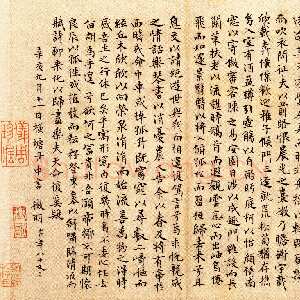 而吹衣問征夫以前路恨晨光之熹微乃瞻衡宇載
欣載奔僮僕歡迎稚子候門三逕就荒松菊猶存
幼入室有酒盈樽引壺觴以自酌眄庭柯以怡顏倚南
窗以寄傲審容膝之易安園日涉以成趣門雖設而長
關策扶老以流憩時矯首而遐觀雲無心而出岫鳥倦
飛而知還景翳翳以將入撫孤松而盤桓歸去來兮請
息交以絕遊世與我而相遺復駕言兮焉求悅親戚
之情話樂琴書以消憂農人告余以春及將有事於
西疇或命巾車或棹孤舟既窈窕以尋壑亦崎嶇而
經丘木欣欣以向榮泉涓涓而始流善萬物之得時
感吾生之行休已矣乎寓形宇內復幾時曷不委心任去
留胡為乎遑遑欲何之富貴非吾願帝鄉不可期懷
良辰以孤往或植杖而耘耔登東皋以舒嘯臨清流而
賦詩聊乘化以歸盡樂夫天命復奚疑
辛亥九月十一日橫塘舟中書徵明時年八十二